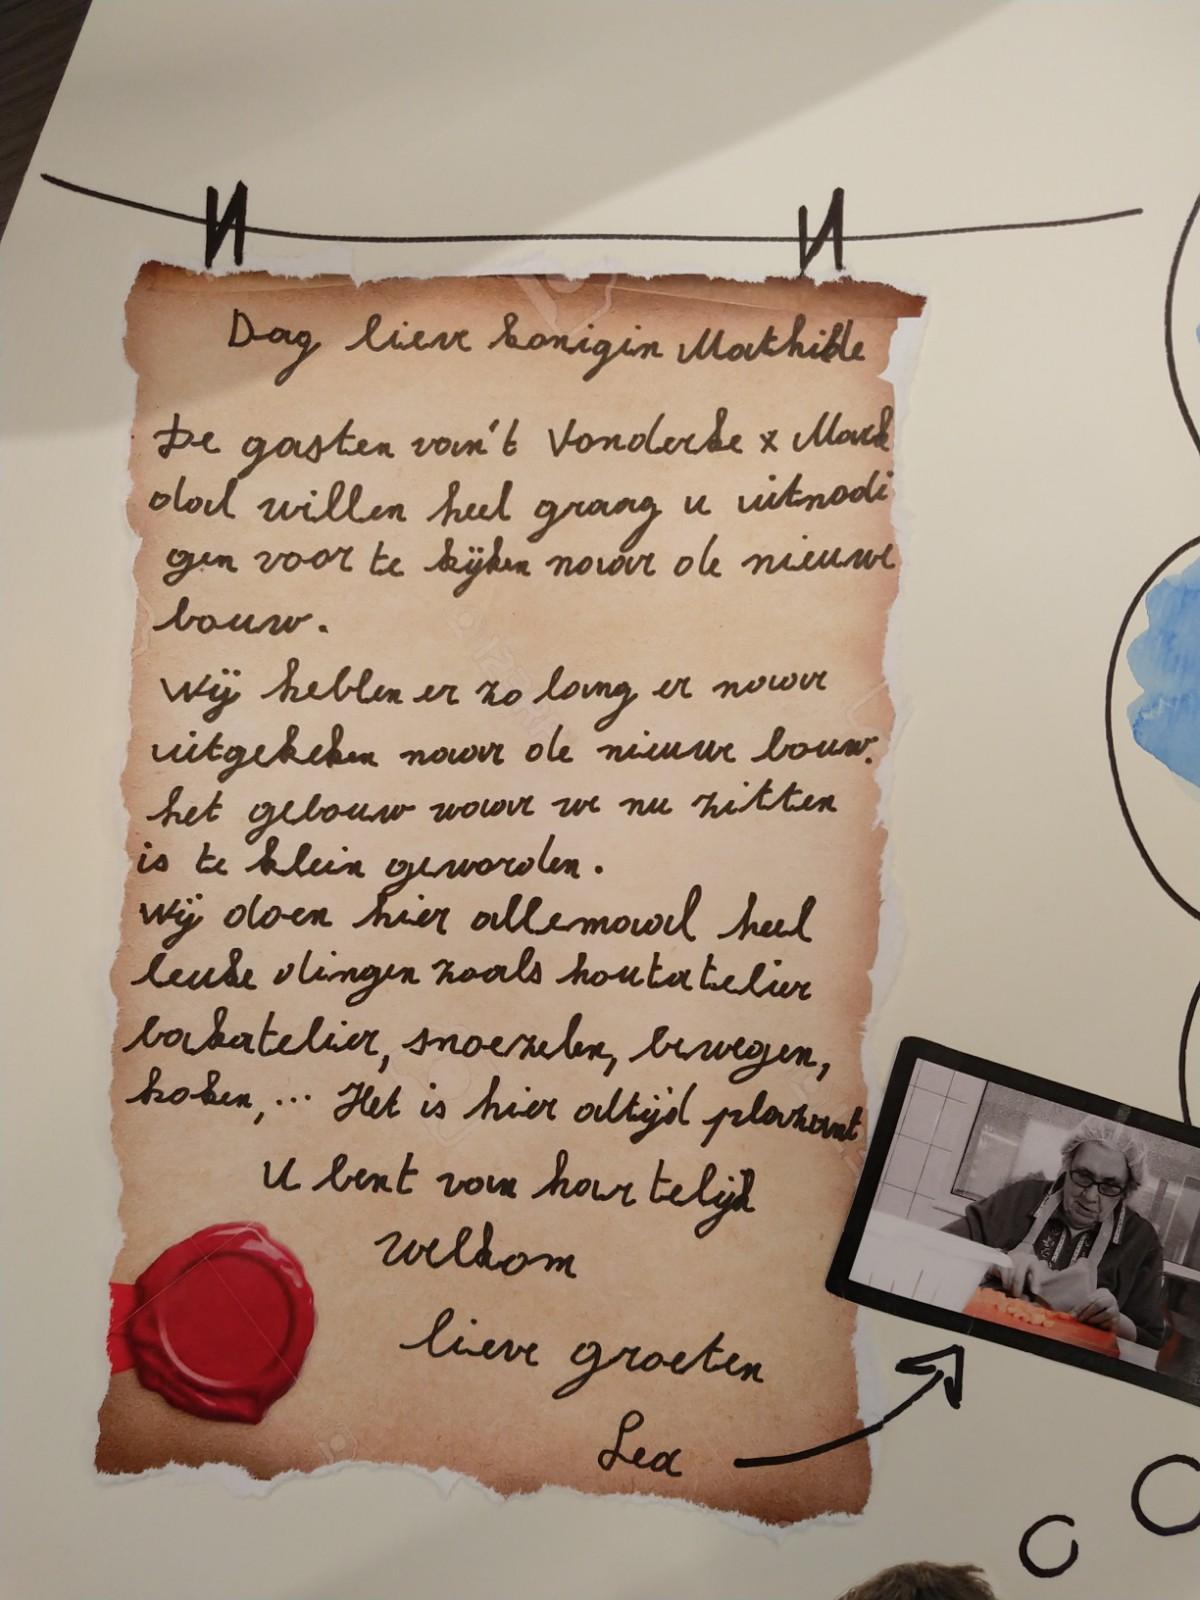 Dag lieve konigin Mathilde
De gasten van't Vonderke x Mark
dal willen heel graag u uitnodi
gen voor te kijken naar de nieuwe
bouw.
Wij hebben er zo lang er naar
uitgekeken naar de nieuwe bouw.
het gebouw waar we nu zitten
is te klein geworden.
Wij doen hier allemaal heel
leuke dingen zoals houtatelier
bakatelier, snoezelen, bewegen,
koken,... Het is hier altijd plezant
U bent van hartelijk
welkom
lieve groeten
Lea